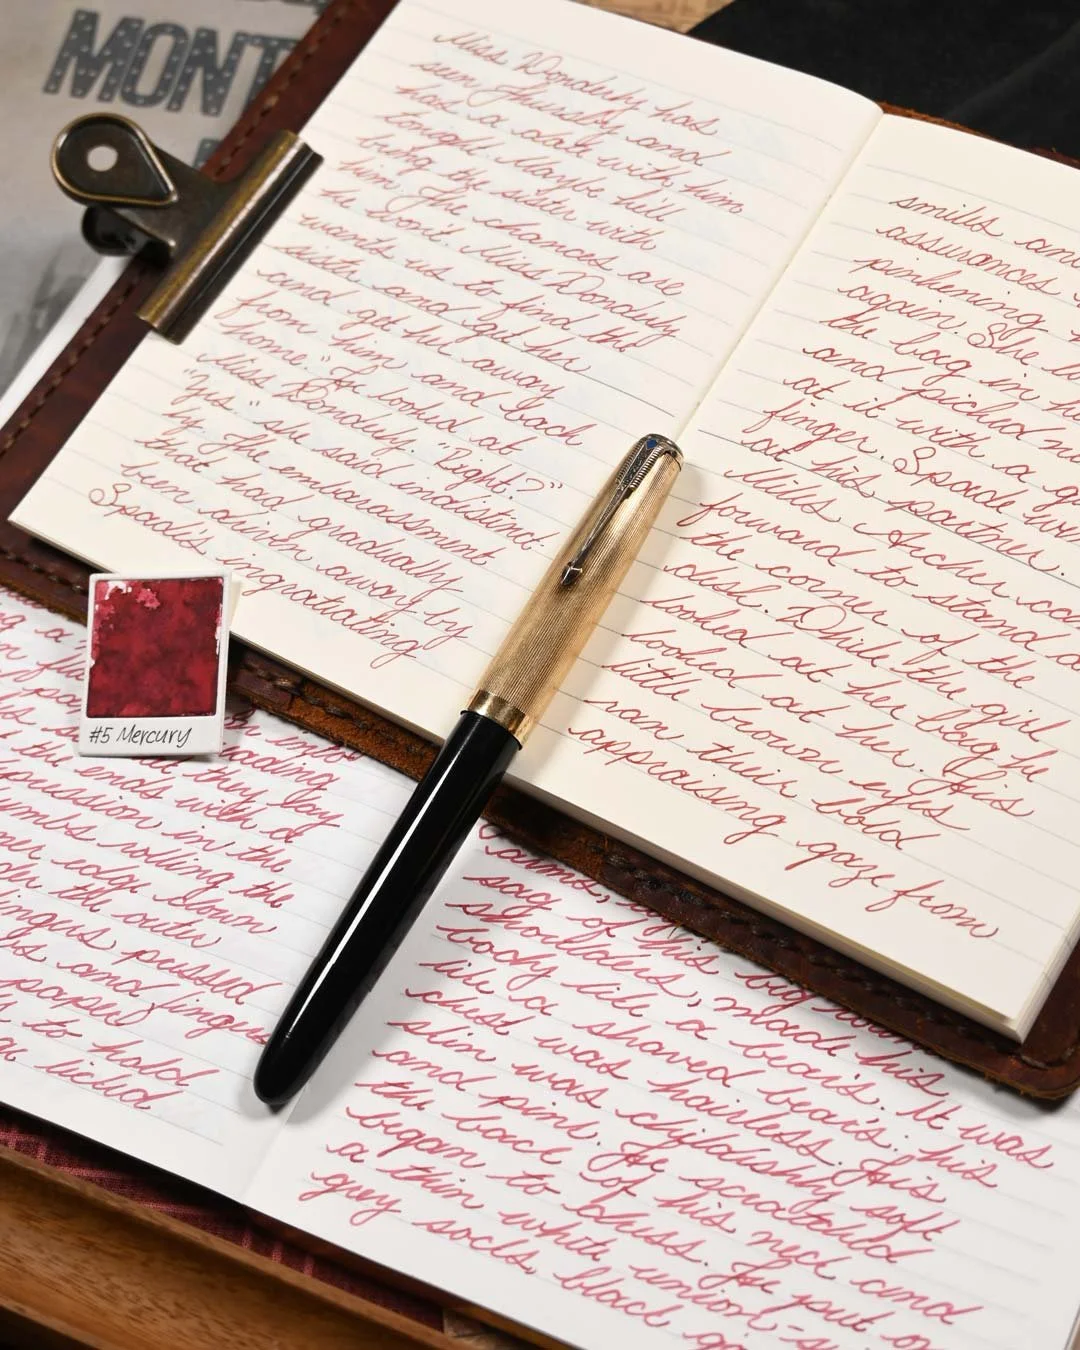 MONT
Miss Wonderly has
seen Thursby and
has a date with him
tonight. Maybe he'll
bring the sister with
him. The chances are
he won't. Miss Wonderly
wants us to find the
sister and get her
and get her away
from him and back
home." He looked at
Miss Wonderly. "Right?"
"Yes" she said indistinct.
by. The embarrassment
that had gradually
been driven away by
Spade's ingratiating
smiles and
assurances
pinkening
again. She
the bag in he
and picked
at it with a
finger. Spade
at his partner.
Miles Archer
forward to stand
the corner of the
desk. While the girl
looked at her bag he
looked at her. His
little brown eyes
ran their bold
appraising gaze from
#5 Mercury
they lay
the ends with a
in the
rolling the
edge down
the outer
fingers pressed
and fingers
paper
to hold
licked
arms,
sag of his big
shoulders, made his
body like a bear's.
like a shaved bear's. It was
chest was hairless. His
skin was childishly soft
and pink. He scratched
the back of his neck and
began to dress. He put on
a thin white union-s
grey socks, black